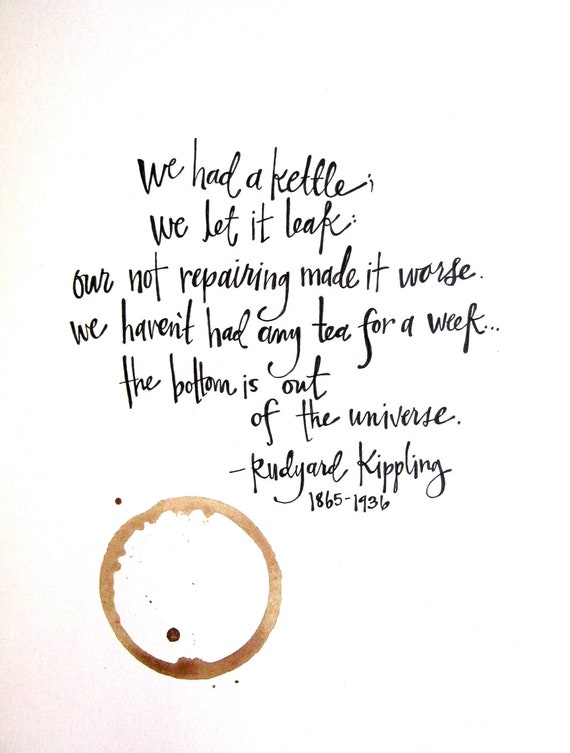 we had a kettle;
we let it leak:
our not repairing made it worse.
we haven't had any tea for a week...
the bottom is out
of the universe.
- Rudyard Kippling
1865-1936